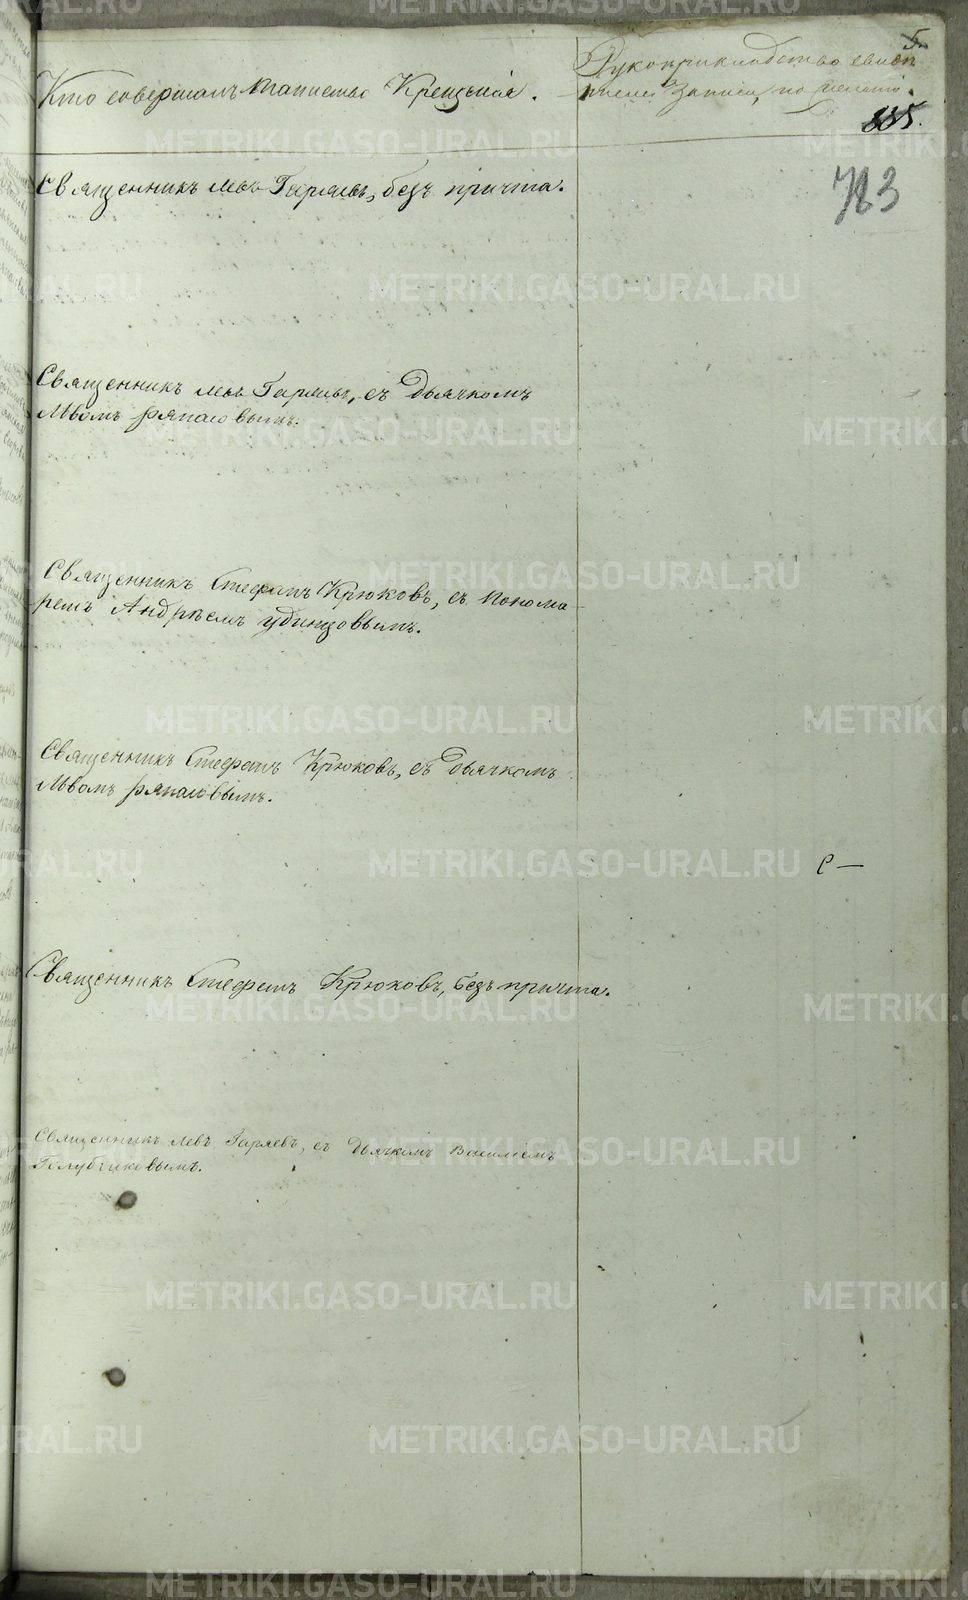 5.
Кто совершалъ таинство Крещенія.
Рукоприкладство свидѣ-
записи по желанію.
335.
783
Священникъ Левъ Гаряевъ, безъ причта.
Священникъ Левъ Гаряевъ, съ Дьячкомъ
Львомъ Ряпасовымъ.
Священникъ Стефанъ Крюковъ, съ Понома-
ремъ Андрѣемъ Удинцовымъ.
Священникъ Стефанъ Крюковъ, съ Дьячкомъ
Львомъ Ряпасовымъ.
С—
Священникъ Стефанъ Крюковъ, безъ причта.
Священникъ Левъ Гаряевъ, съ Дьячкомъ Василіемъ
Голубчиковымъ.
METRIKI.GASO-URAL.RU